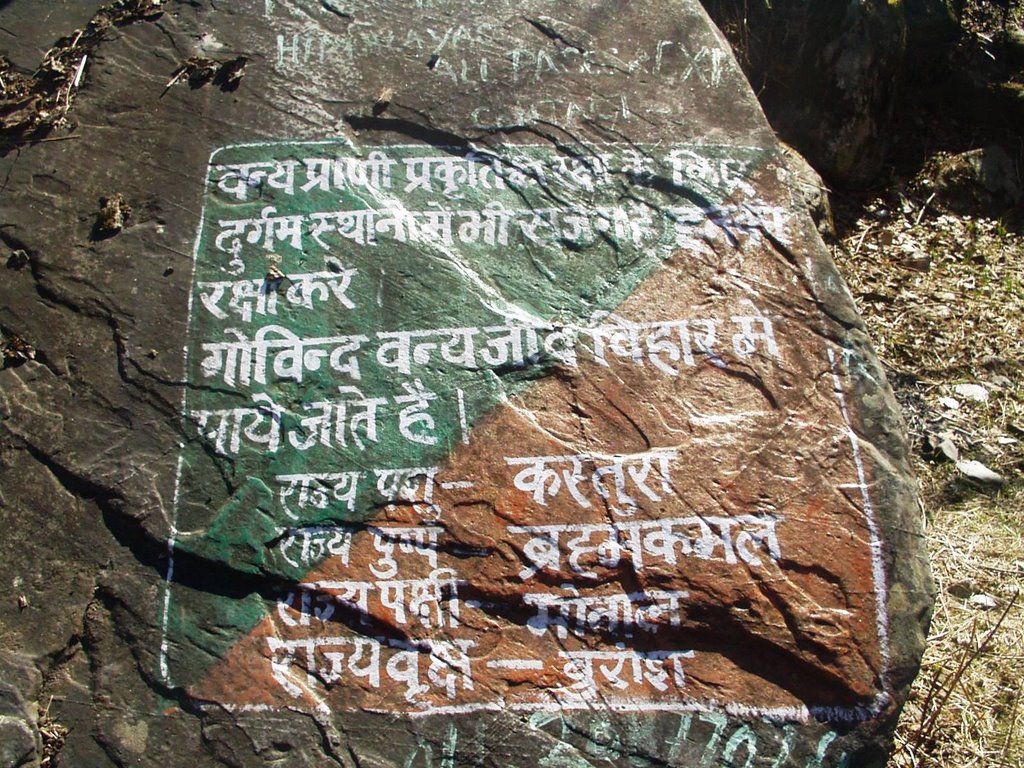 HIMALAYAS
वन्य प्राणी प्रकृति के रक्षा के लिए
दुर्गम स्थानो मे भी सजग है इनकी
रक्षा करे
गोविन्द वन्य जीव विहार मे
पाये जाते है।
राज्य पशु - कस्तुरा
राज्य पुष्प - ब्रह्मकमल
राज्य पक्षी - मोनाल
राज्य वृक्ष - बुरांश